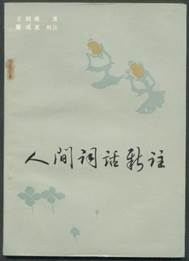 王国维 著
滕咸惠 校注
人間词话新註